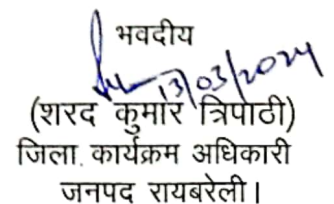 भवदीय
13/03/2024
(शरद कुमार त्रिपाठी)
जिला कार्यक्रम अधिकारी
जनपद रायबरेली।